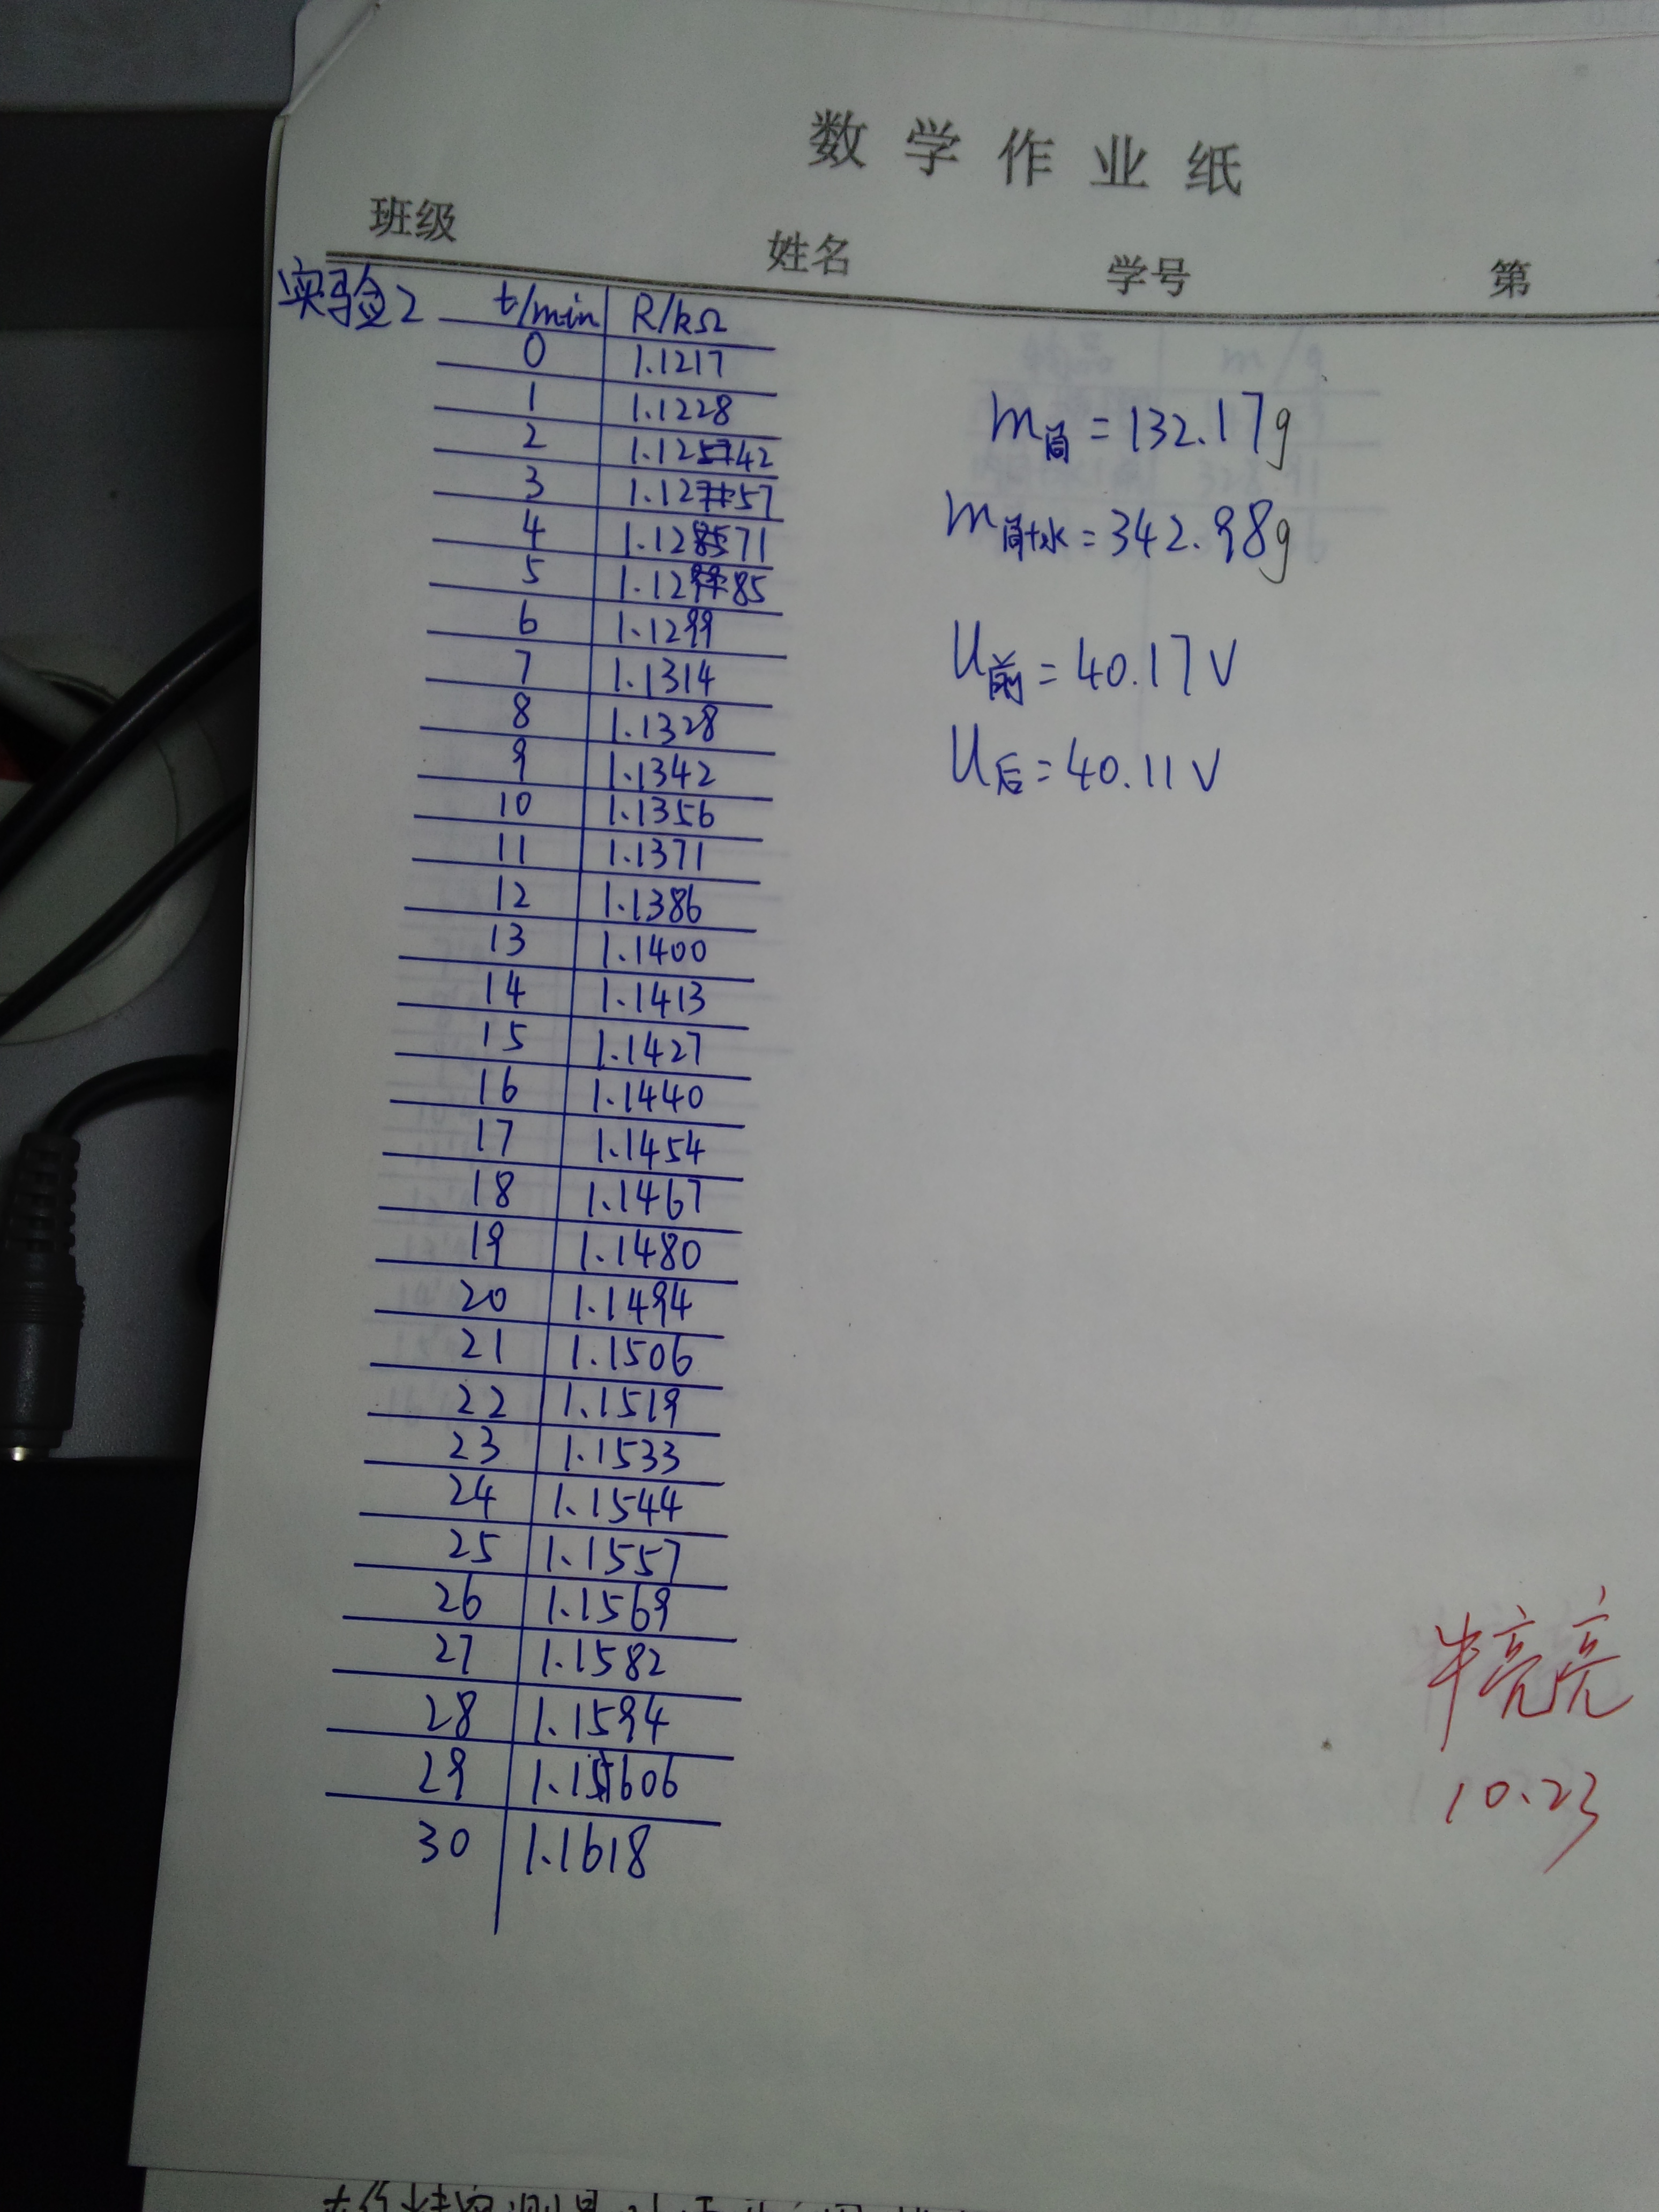 数学作业纸
班级 姓名 学号 第
实验2
t/min R/kΩ
0 1.1217
1 1.1228
2 1.1242
3 1.1257
4 1.1271
5 1.1285
6 1.1299
7 1.1314
8 1.1328
9 1.1342
10 1.1356
11 1.1371
12 1.1386
13 1.1400
14 1.1413
15 1.1427
16 1.1440
17 1.1454
18 1.1467
19 1.1480
20 1.1494
21 1.1506
22 1.1519
23 1.1533
24 1.1544
25 1.1557
26 1.1569
27 1.1582
28 1.1594
29 1.1606
30 1.1618
m筒=132.17g
m筒+水=342.98g
U前=40.17V
U后=40.11V
亮亮
10.23